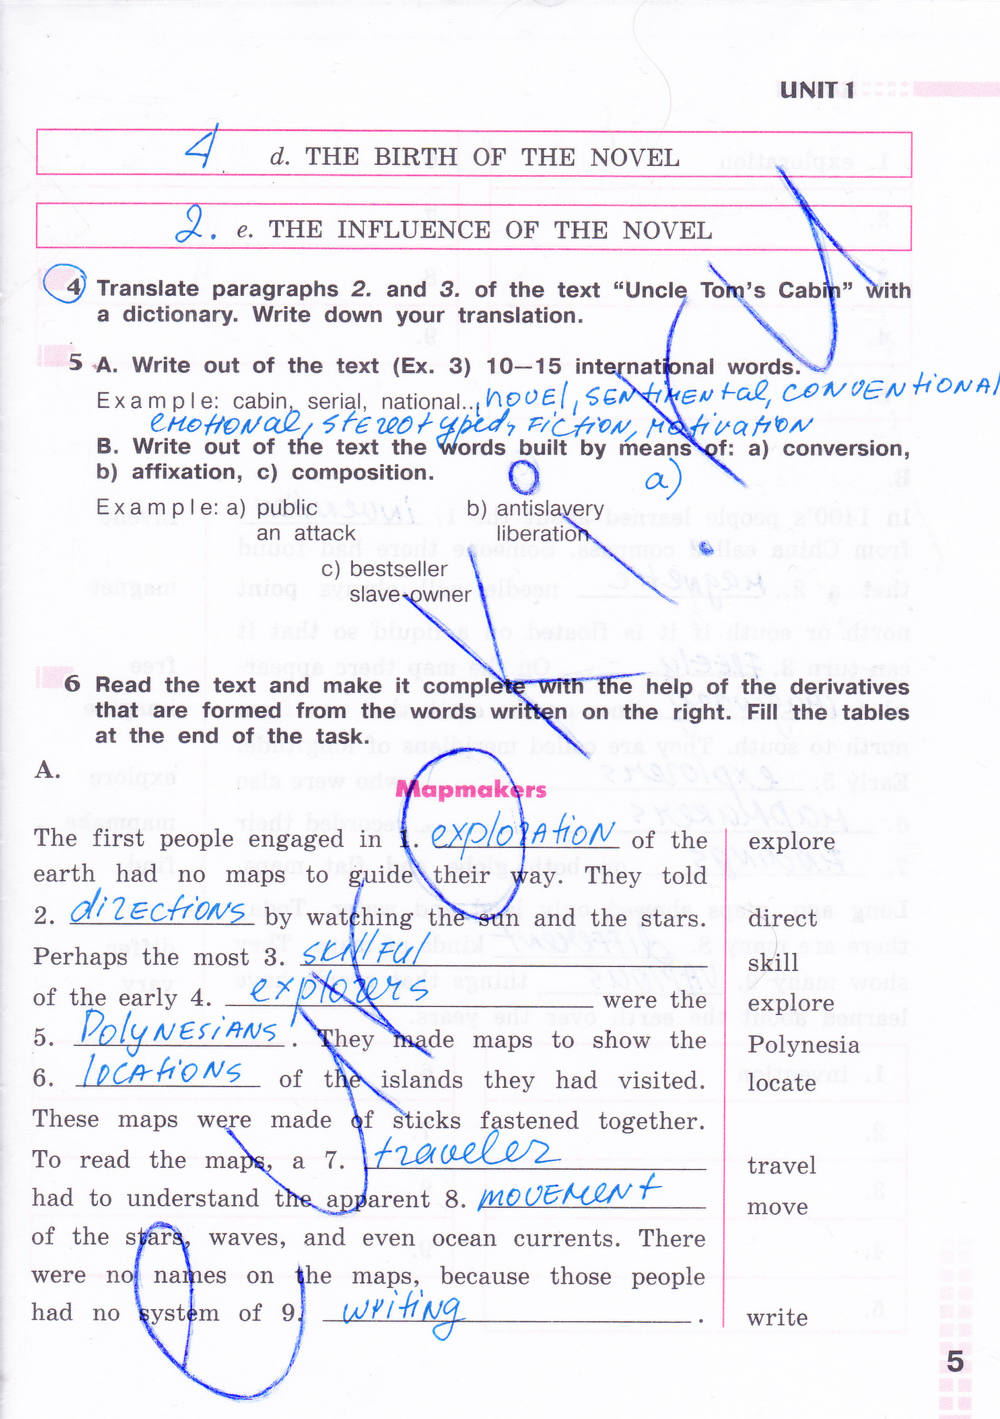 UNIT 1
4 d. THE BIRTH OF THE NOVEL
2. e. THE INFLUENCE OF THE NOVEL
4 Translate paragraphs 2. and 3. of the text “Uncle Tom’s Cabin” with
a dictionary. Write down your translation.
5 A. Write out of the text (Ex. 3) 10—15 international words.
Example: cabin, serial, national..., novel, sentimental, conventional
emotional, stereotyped, fiction, motivation
B. Write out of the text the words built by means of: a) conversion,
b) affixation, c) composition.
a)
Example: a) public b) antislavery
an attack liberation
c) bestseller
slave-owner
6 Read the text and make it complete with the help of the derivatives
that are formed from the words written on the right. Fill the tables
at the end of the task.
A.
Mapmakers
The first people engaged in 1. exploration of the explore
earth had no maps to guide their way. They told
2. directions by watching the sun and the stars. direct
Perhaps the most 3. skillful skill
of the early 4. explorers were the explore
5. Polynesians. They made maps to show the Polynesia
6. locations of the islands they had visited. locate
These maps were made of sticks fastened together.
To read the maps, a 7. traveler travel
had to understand the apparent 8. movement move
of the stars, waves, and even ocean currents. There
were no names on the maps, because those people
had no system of 9. writing. write
5